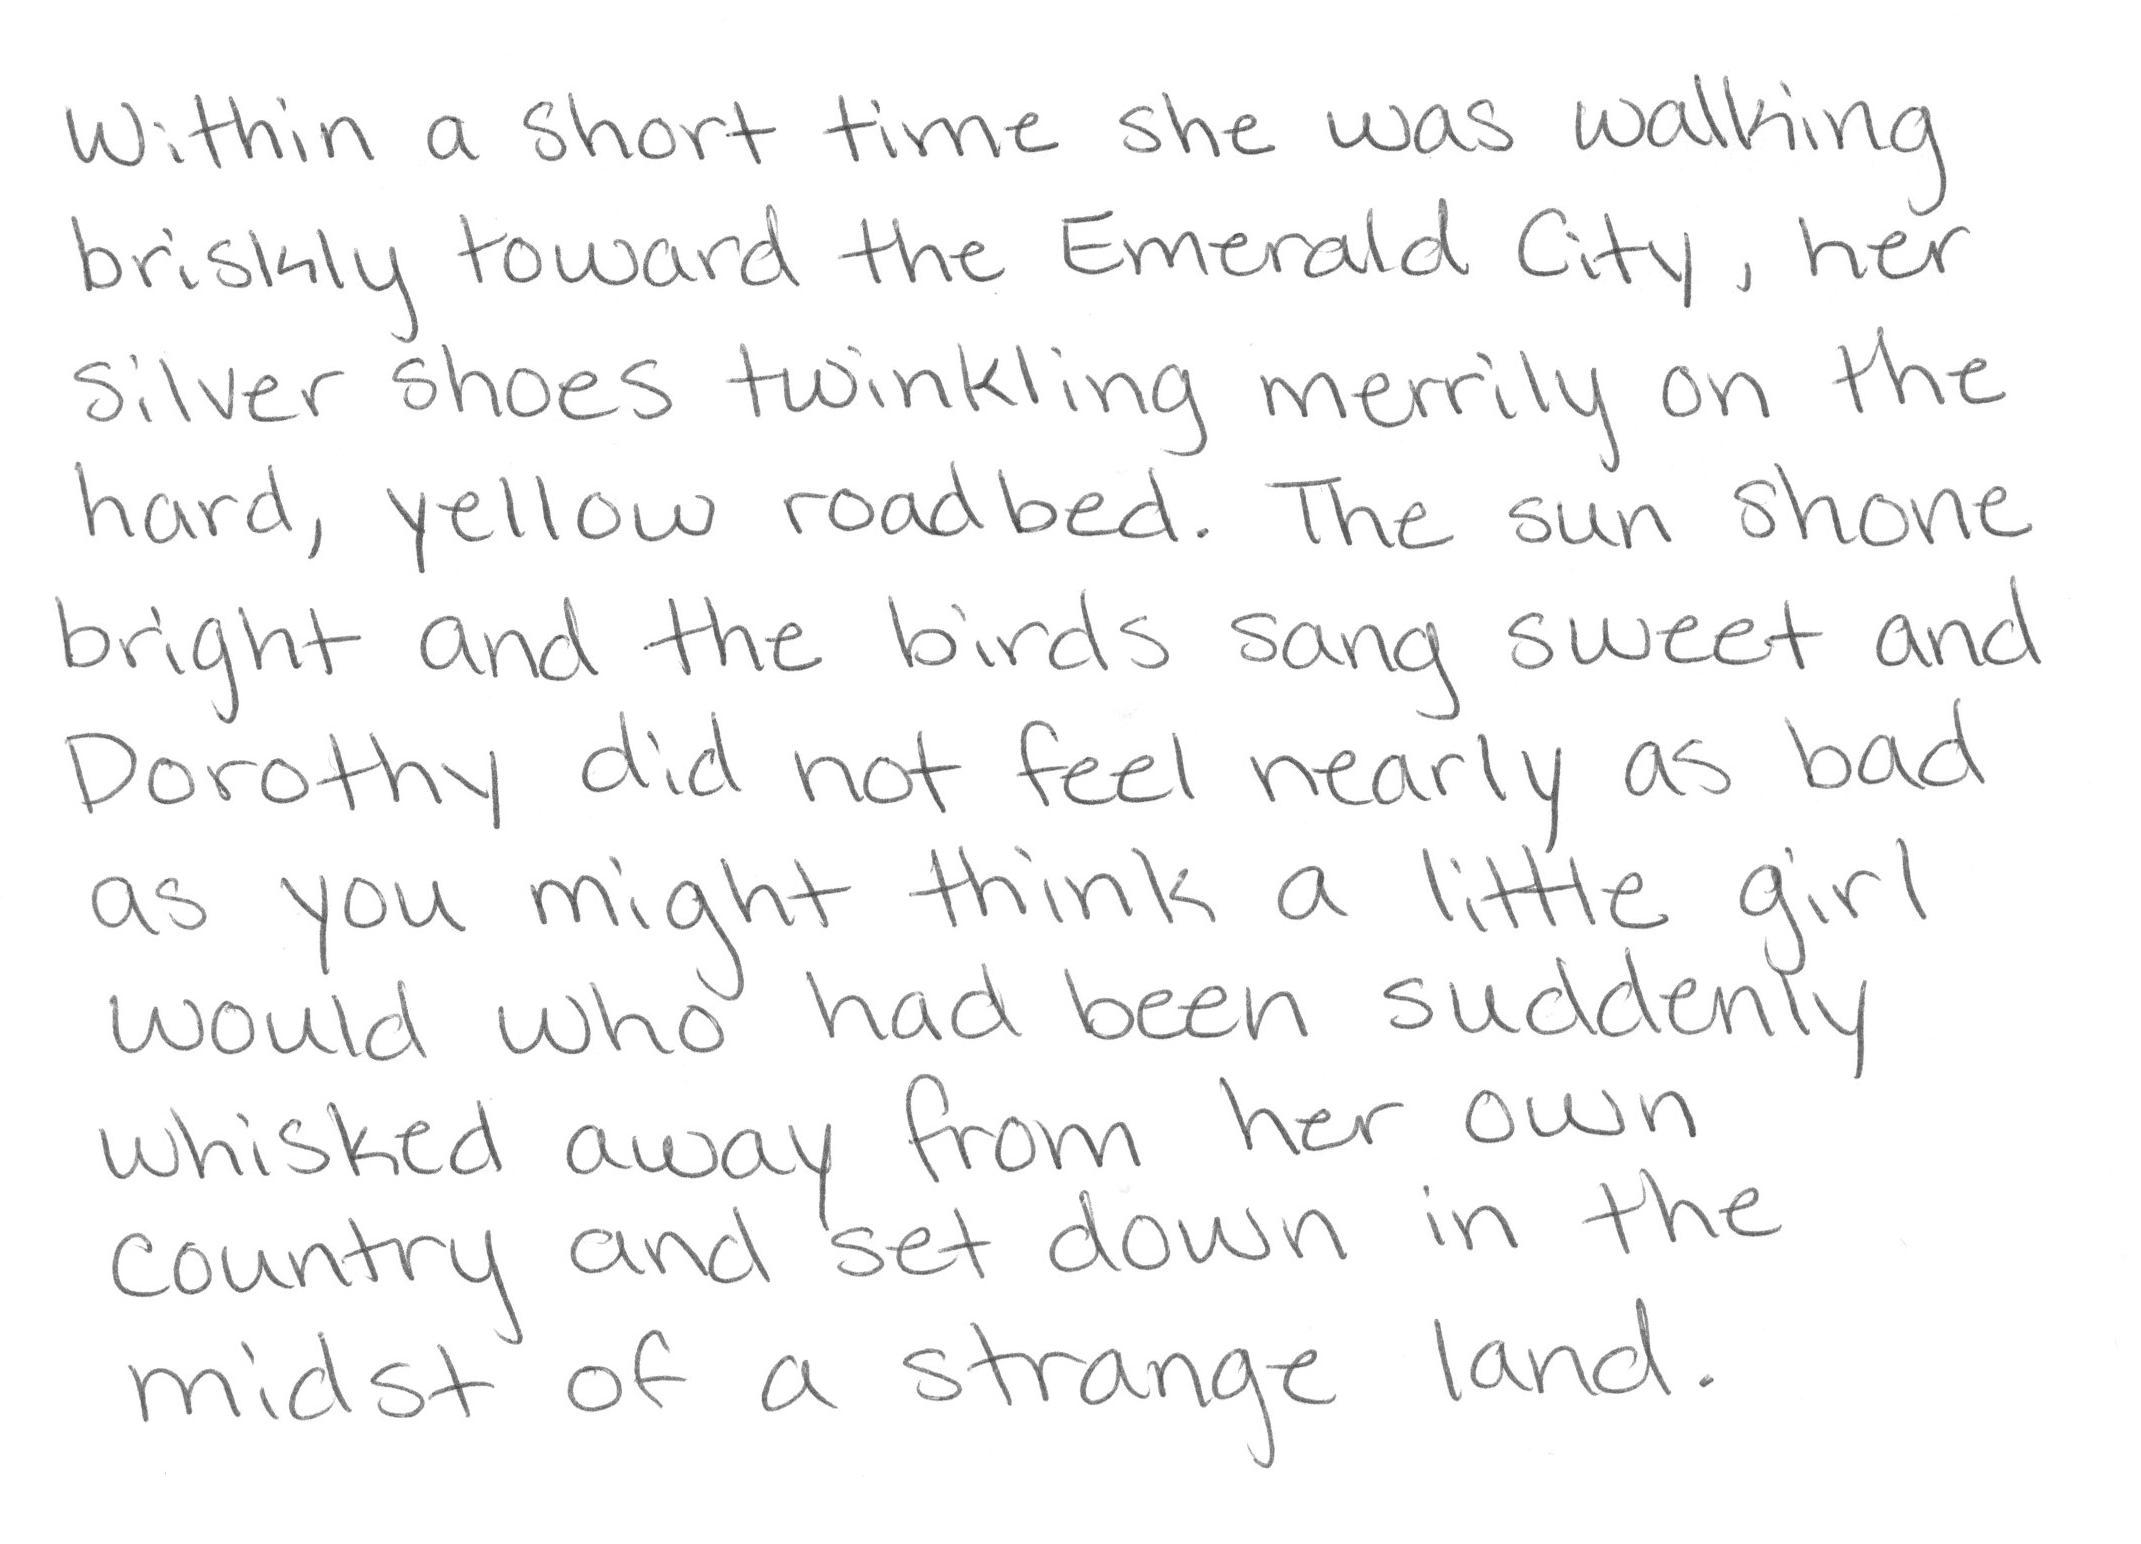 Within a short time she was walking
briskly toward the Emerald City, her
silver shoes twinkling merrily on the
hard, yellow roadbed. The sun shone
bright and the birds sang sweet and
Dorothy did not feel nearly as bad
as you might think a little girl
would who had been suddenly
whisked away from her own
country and set down in the
midst of a strange land.